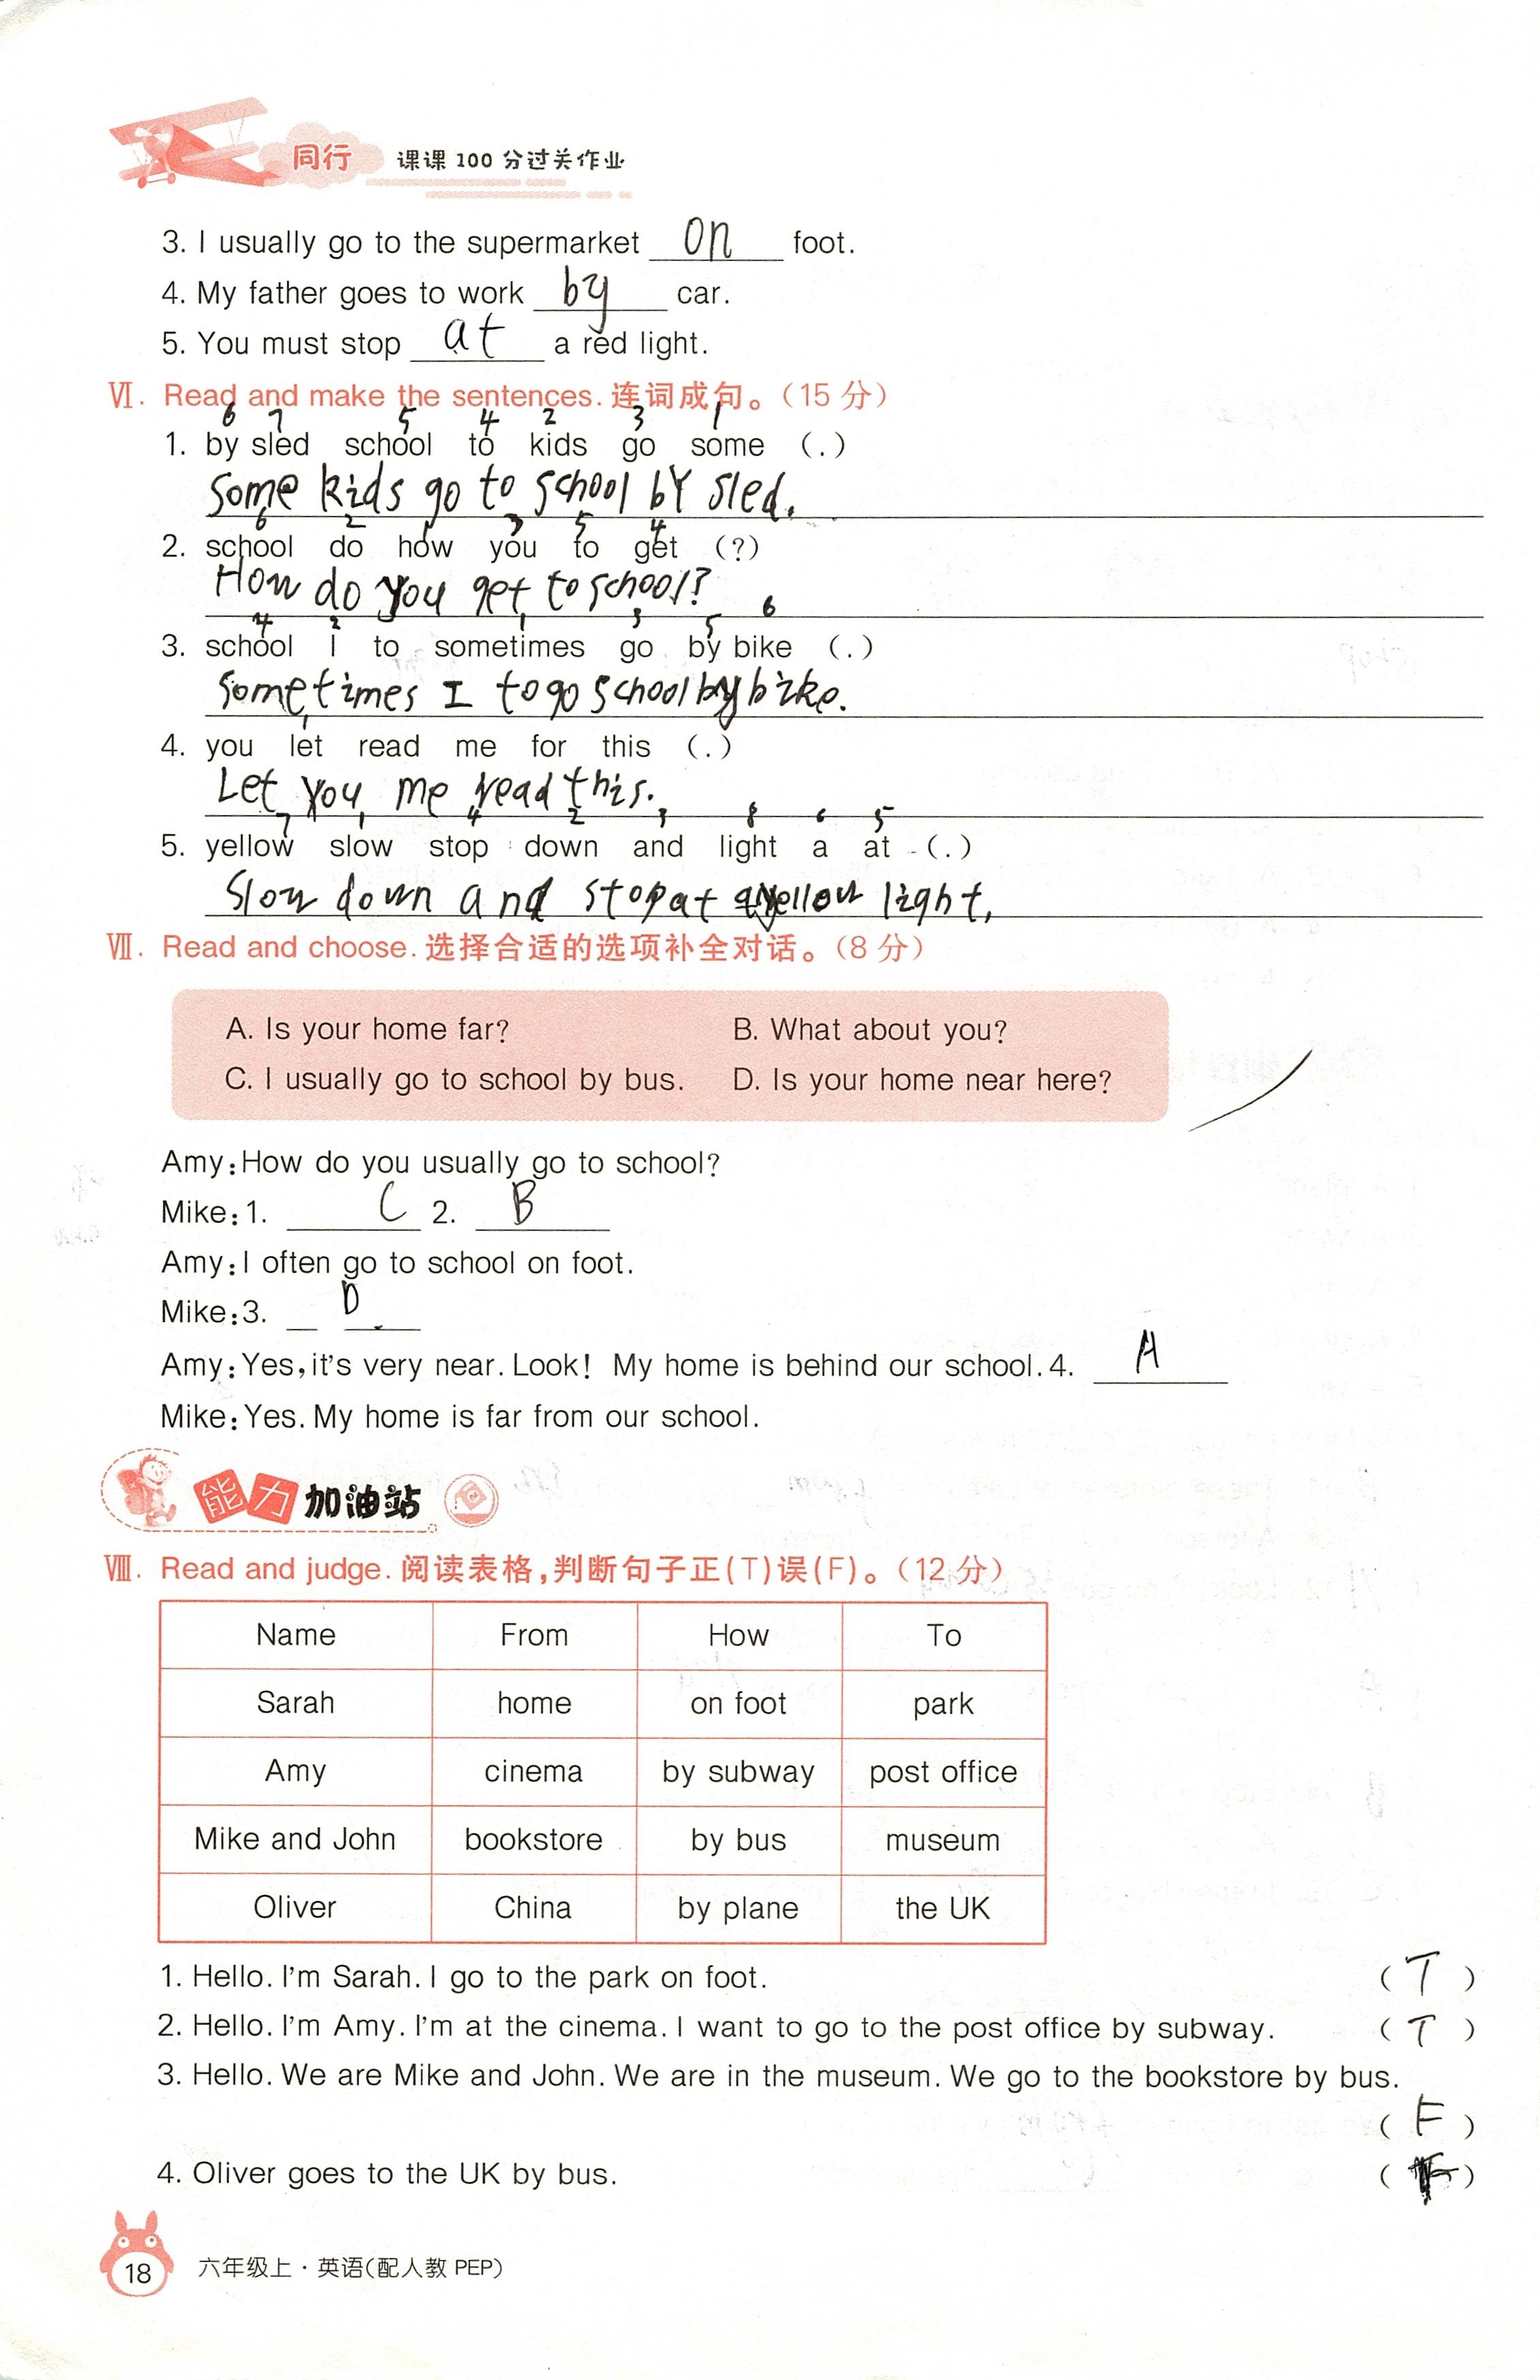 同行 课课100分过关作业
3. I usually go to the supermarket on foot.
4. My father goes to work by car.
5. You must stop at a red light.
Ⅵ. Read and make the sentences. 连词成句。(15 分)
6 7 5 4 2 3 1
1. by sled school to kids go some (.)
Some kids go to school by sled.
6 2 1 3 5 4
2. school do how you to get (?)
How do you get to school?
4 2 1 3 5 6
3. school I to sometimes go by bike (.)
Sometimes I to go school by bike.
1
4. you let read me for this (.)
Let you me read this.
7 1 4 2 3 8 6 5
5. yellow slow stop down and light a at (.)
Slow down and stop at a yellow light.
Ⅶ. Read and choose. 选择合适的选项补全对话。(8 分)
A. Is your home far? B. What about you?
C. I usually go to school by bus. D. Is your home near here?
Amy: How do you usually go to school?
Mike: 1. C 2. B
Amy: I often go to school on foot.
Mike: 3. D
Amy: Yes, it's very near. Look! My home is behind our school. 4. A
Mike: Yes. My home is far from our school.
能力加油站
Ⅷ. Read and judge. 阅读表格,判断句子正(T)误(F)。(12 分)
Name From How To
Sarah home on foot park
Amy cinema by subway post office
Mike and John bookstore by bus museum
Oliver China by plane the UK
1. Hello. I'm Sarah. I go to the park on foot. ( T )
2. Hello. I'm Amy. I'm at the cinema. I want to go to the post office by subway. ( T )
3. Hello. We are Mike and John. We are in the museum. We go to the bookstore by bus.
( F )
4. Oliver goes to the UK by bus. ( F )
18 六年级上·英语(配人教 PEP)